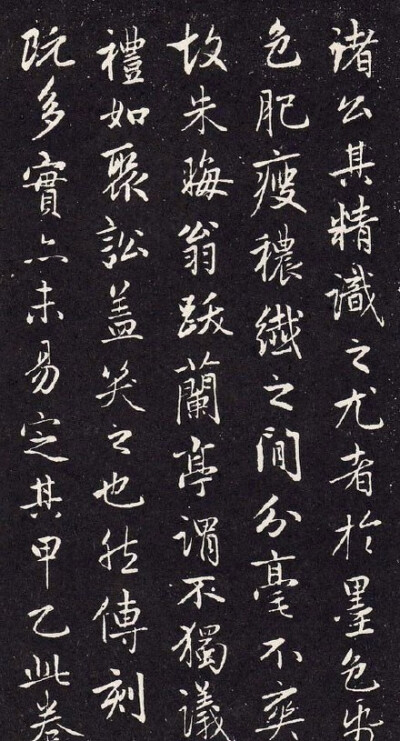 諸公其精識之尤者於墨色
色肥瘦穠纖之間分毫不爽
故朱晦翁跋蘭亭謂不獨議
禮如聚訟蓋笑之也然傳刻
既多實亦未易定其甲乙此卷